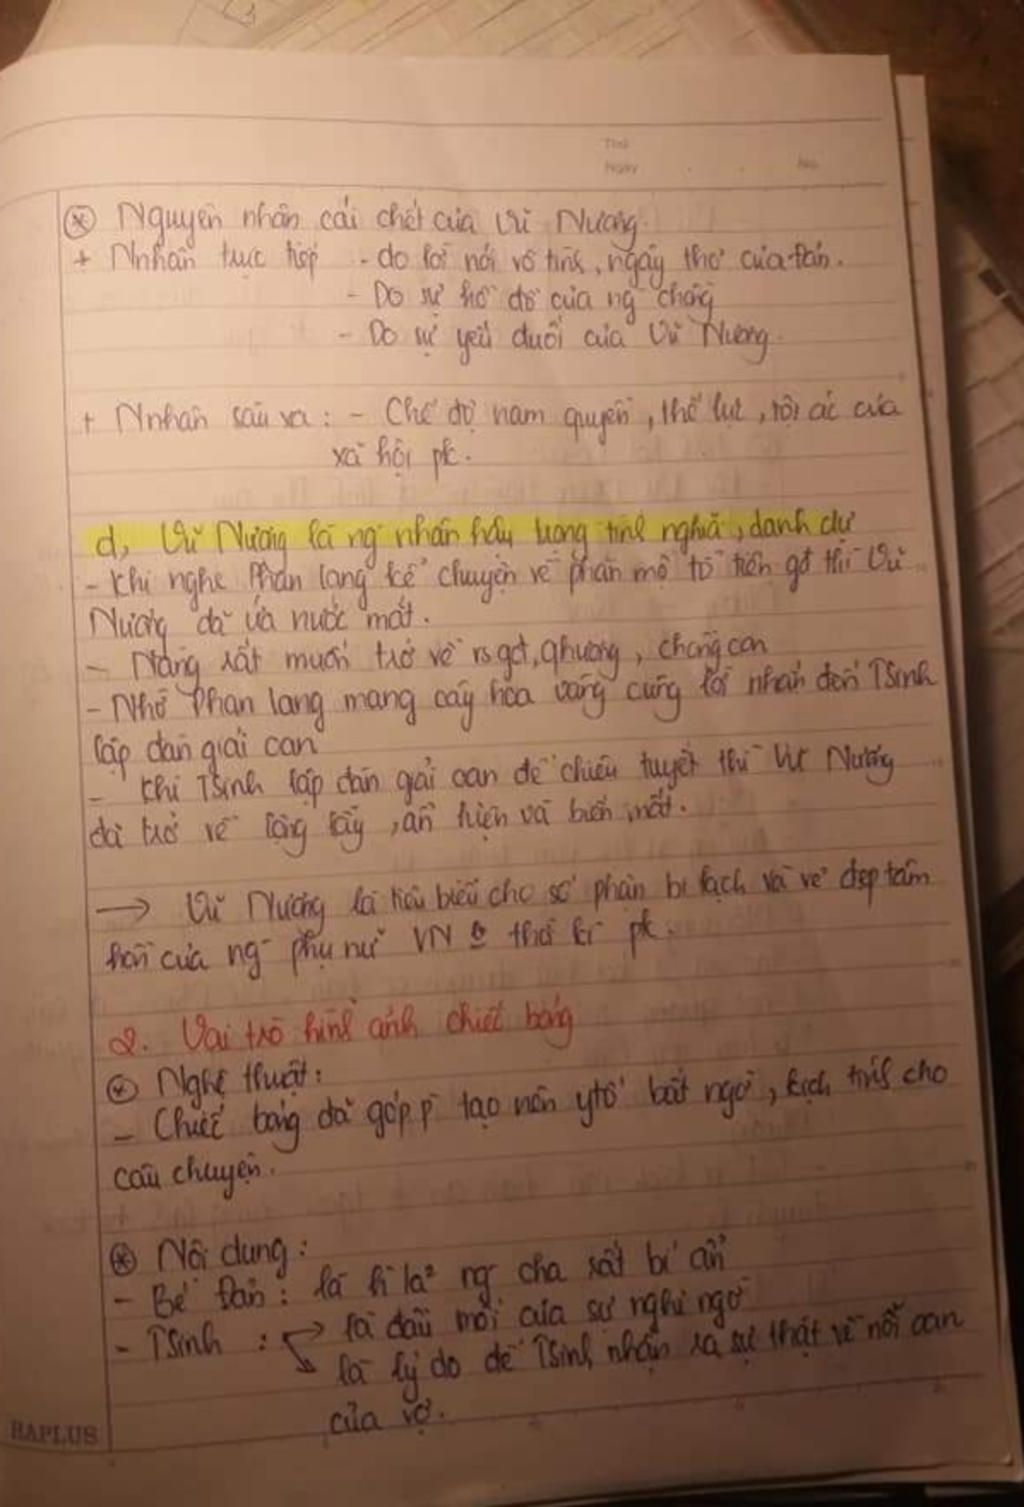 Thứ
Ngày . . No.
⊛ Nguyên nhân cái chết của Vũ Nương.
+ Nnhân trực tiếp - do lời nói vô tình, ngây thơ của Đản.
- Do sự hồ đồ của ng chồng
- Do sự yếu đuối của Vũ Nương.
+ Nnhân sâu xa : - Chế độ nam quyền, thế lực, tội ác của
xã hội pk.
d, Vũ Nương là ng nhân hậu trọng tình nghĩa, danh dự
- Khi nghe Phan lang kể chuyện về phần mộ tổ tiên gđ thì Vũ
Nương đã ứa nước mắt.
- Nàng rất muốn trở về vs gđ, qhương, chồng con
- Nhờ Phan lang mang cây hoa vàng cùng lời nhắn đến TSinh
lập đàn giải oan
- Khi TSinh lập đàn giải oan để chiêu tuyết thì Vũ Nương
đã trở về lộng lẫy, ẩn hiện và biến mất.
→ Vũ Nương là tiêu biểu cho số phận bi kịch và vẻ đẹp tâm
hồn của ng phụ nữ VN thời kì pk.
2. Vai trò hình ảnh chiếc bóng
⊛ Nghệ thuật:
- Chiếc bóng đã góp p tạo nên ytố bất ngờ, kịch tính cho
câu chuyện.
⊛ Nội dung:
- Bé Đản: là 1 ng cha rất bí ẩn
- TSinh : → là đầu mối của sự nghi ngờ
là lý do để TSinh nhận ra sự thật về nỗi oan
của vợ.
HAPLUS